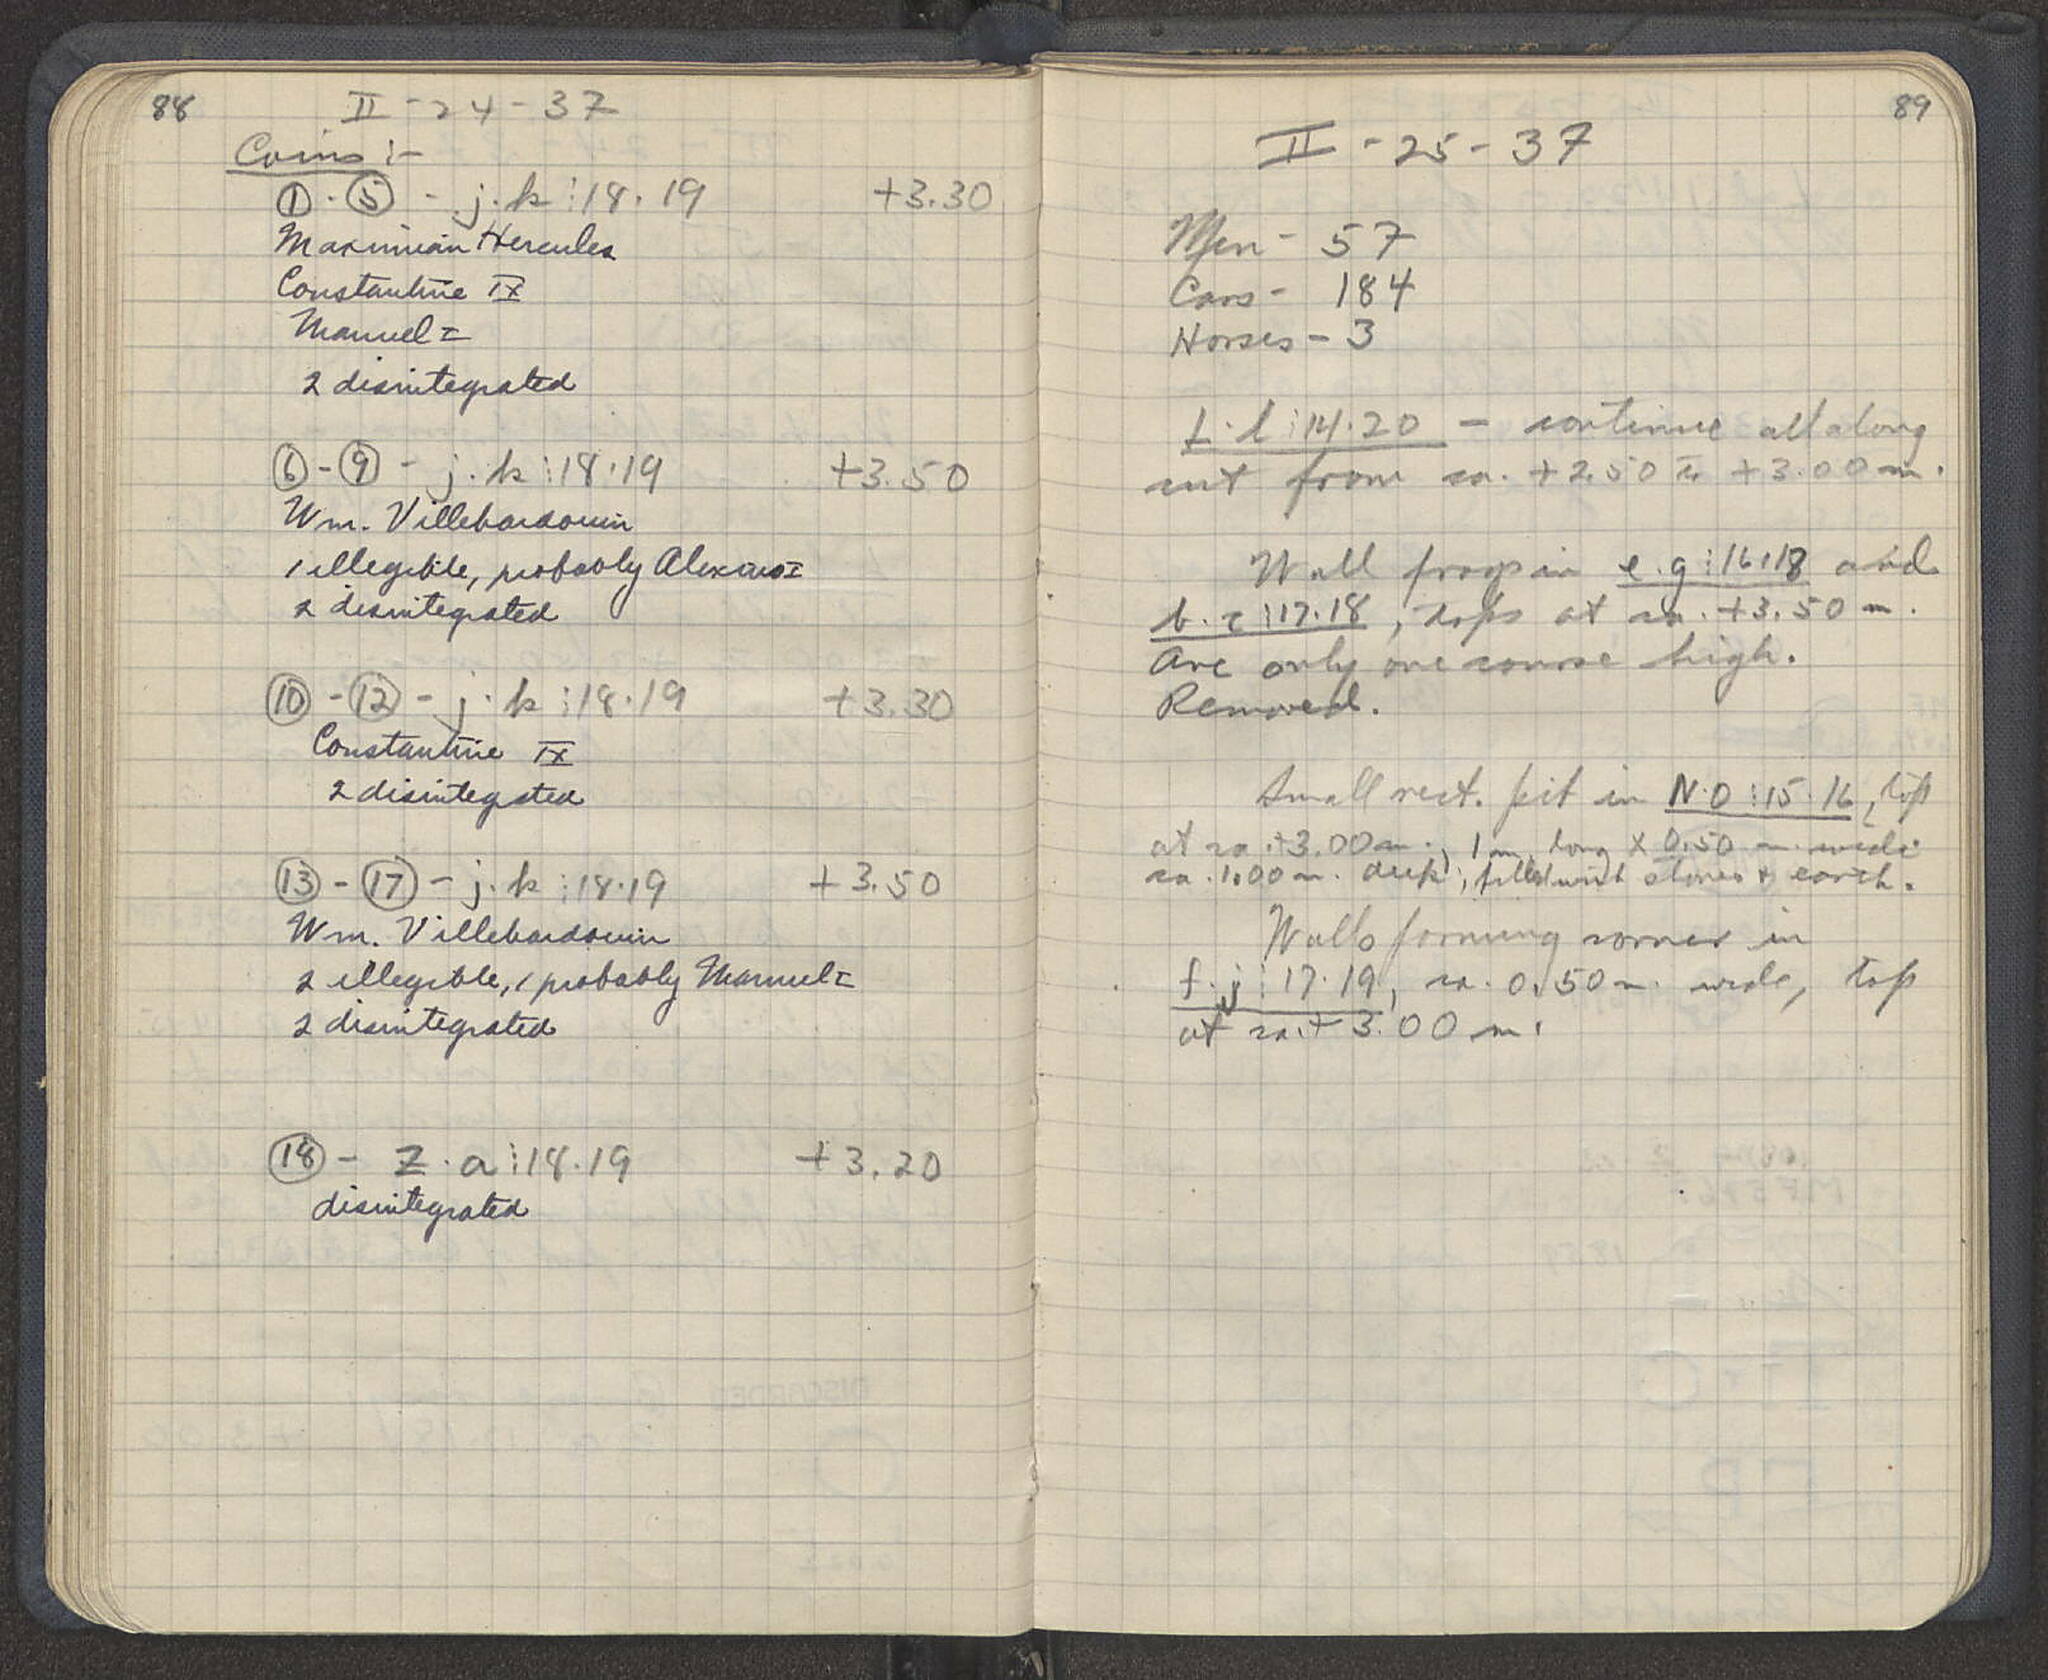 88
II - 24 - 37
Coins :-
① - ⑤ - j.k⁝18.19 +3.30
Maximian Hercules
Constantine IX
Manuel I
2 disintegrated
⑥ - ⑨ - j.k⁝18.19 +3.50
Wm. Villehardouin
1 illegible, probably Alexius I
2 disintegrated
⑩ - ⑫ - j.k⁝18.19 +3.30
Constantine IX
2 disintegrated
⑬ - ⑰ - j.k⁝18.19 +3.50
Wm. Villehardouin
2 illegible, 1 probably Manuel I
2 disintegrated
⑱ - Z.a⁝18.19 +3.20
disintegrated
89
II - 25 - 37
Men - 57
Cars - 184
Horses - 3
L.l⁝14.20 - continue all along
cut from ca. +2.50 to +3.00 m.
Wall frags in e.g⁝16.18 and
b.c⁝17.18, tops at ca. +3.50 m.
Are only one course high.
Removed.
Small rect. pit in N.O⁝15.16, top
at ca. +3.00 m., 1 m. long x 0.50 m. wide
ca. 1.00 m. deep; filled with stones & earth.
Walls forming corner in
f.j⁝17.19, ca. 0.50 m. wide, top
at ca. + 3.00 m.